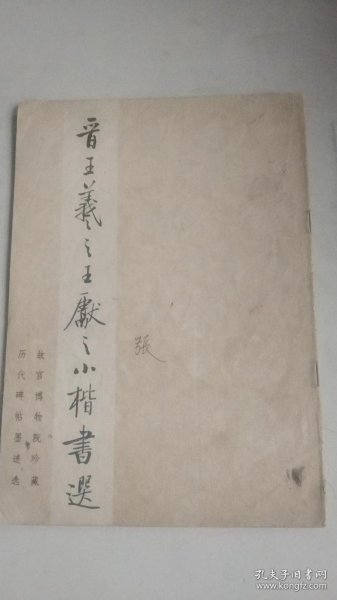 晋王羲之王獻之小楷書選
故宫博物院珍藏
历代碑帖墨迹选
張
孔夫子旧书网